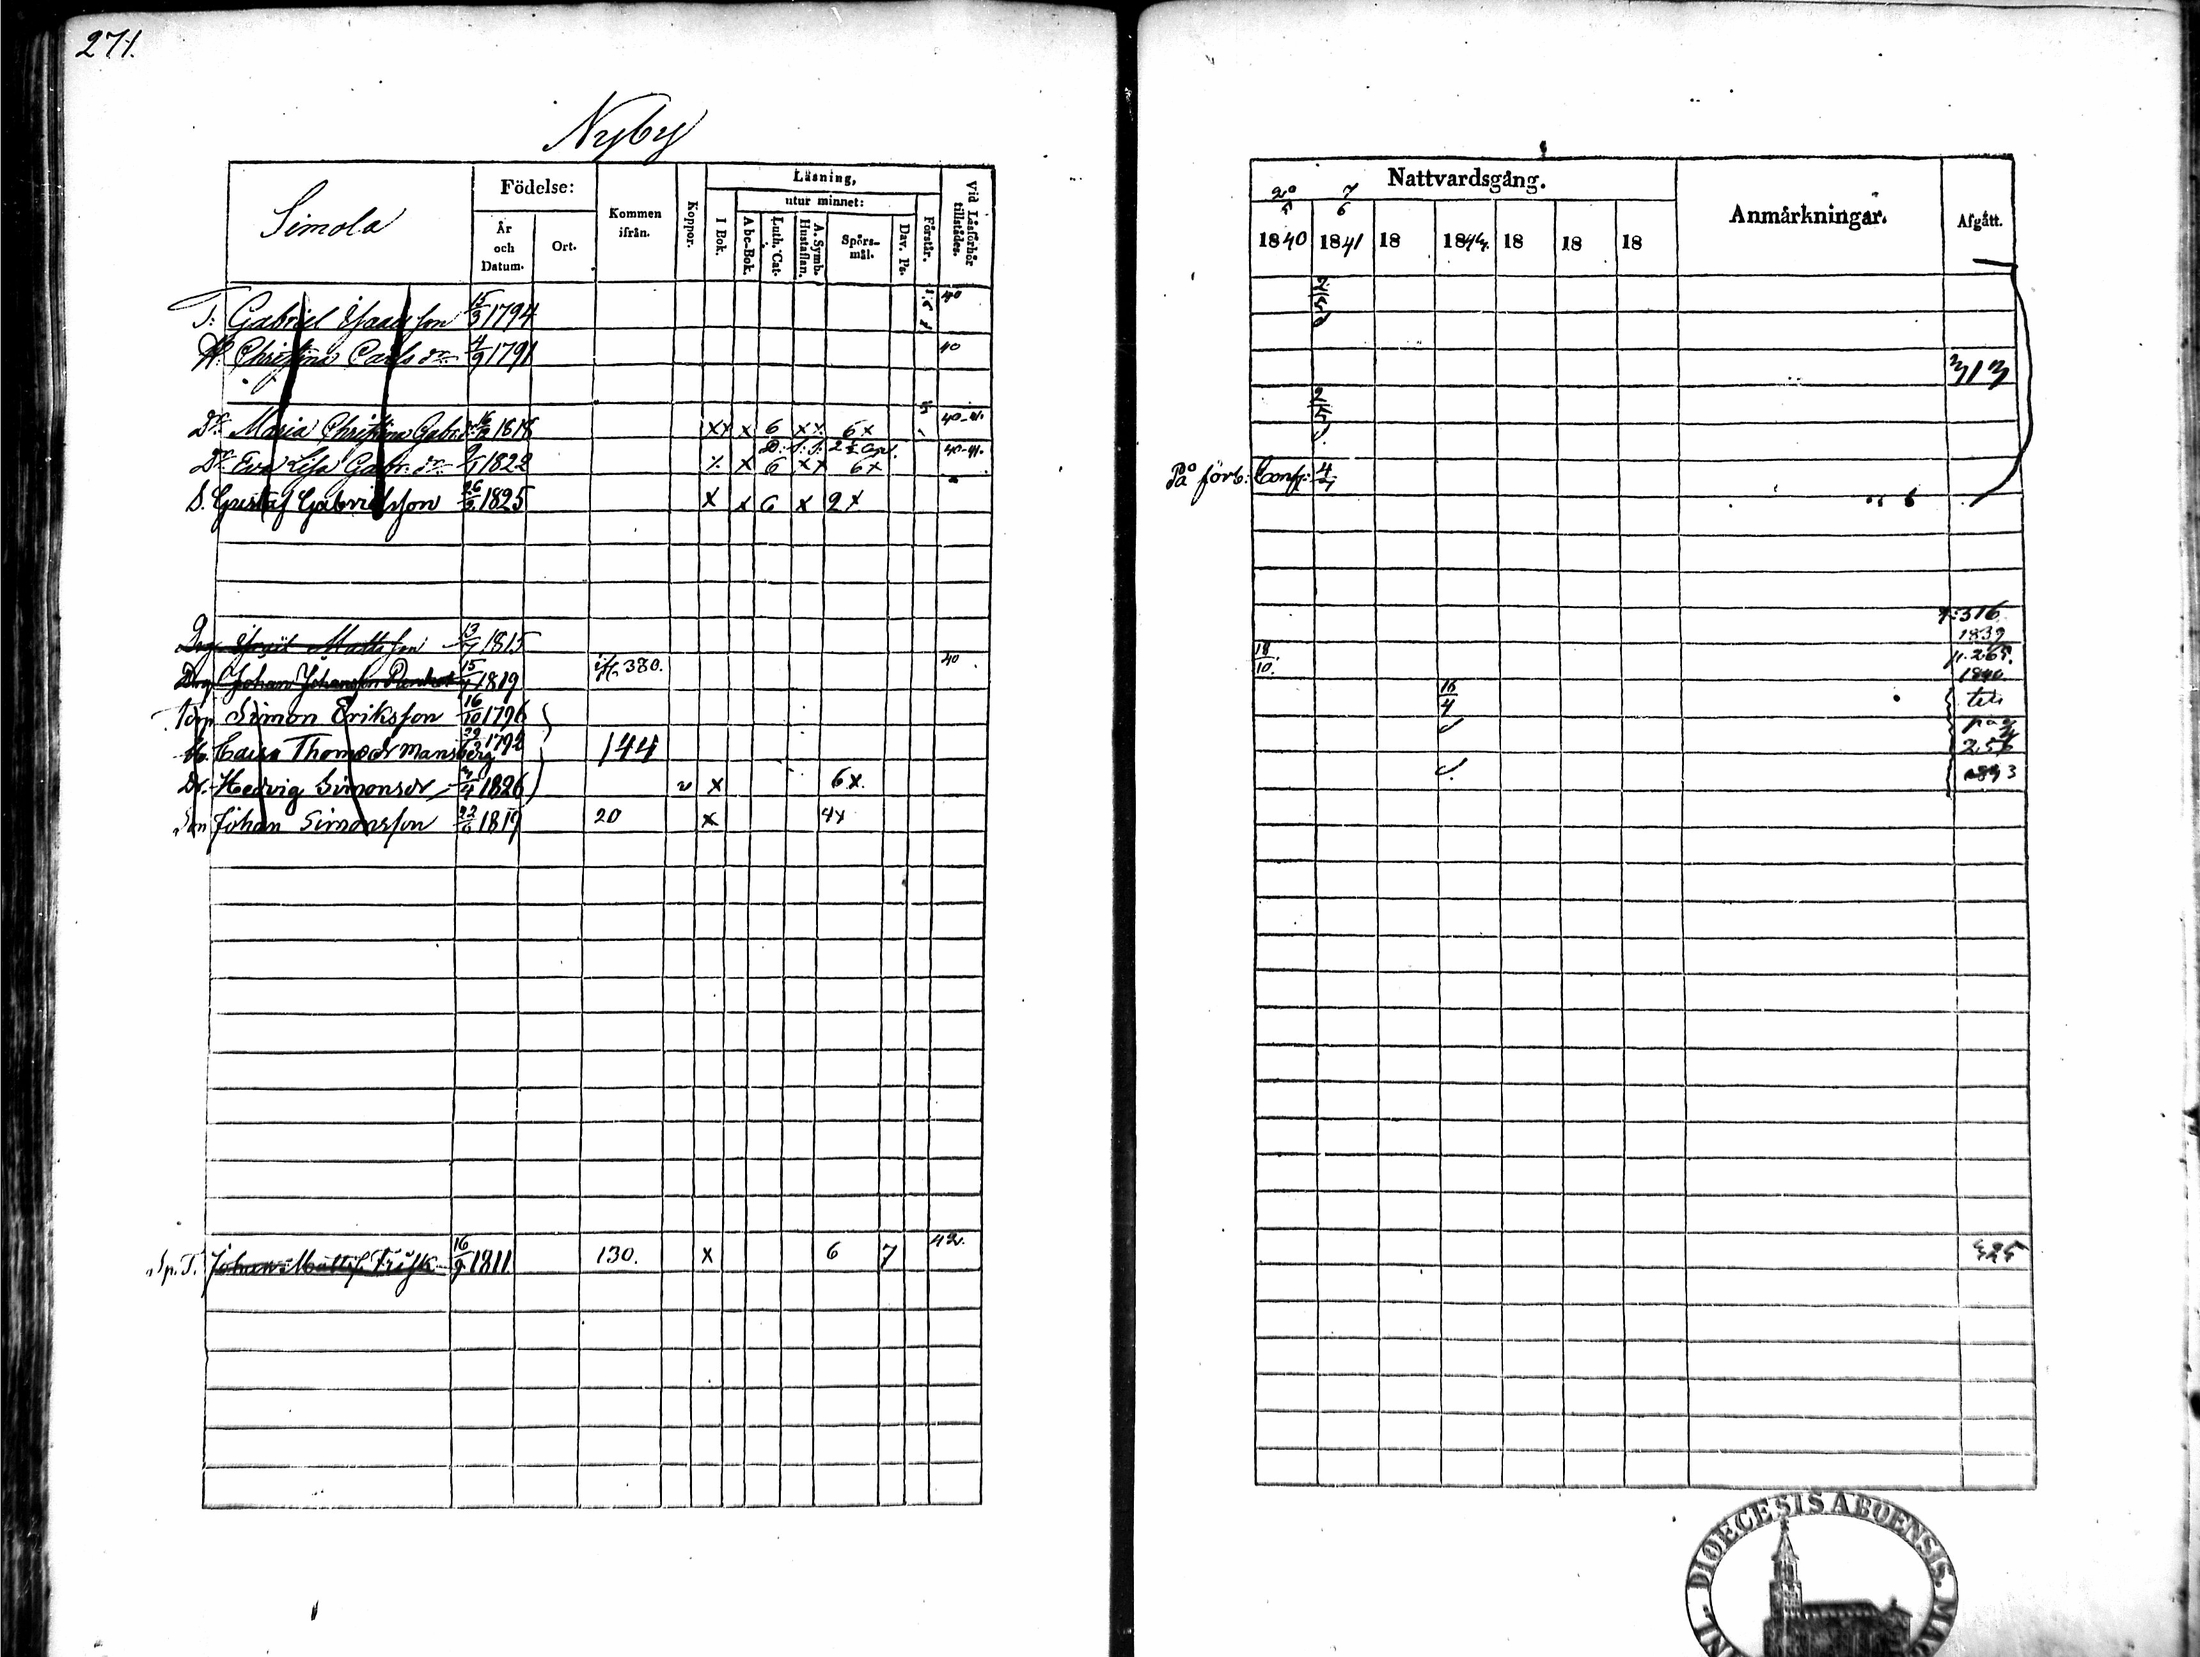 271.
Nyby
Simola
Födelse:
År och Datum.
Ort.
Kommen ifrån.
Koppor.
Läsning,
I Bok.
utur minnet:
Abc-Bok.
Luth. Cat.
A. Symb. Hustaflan.
Spörsmål.
Dav. Ps.
Förstår.
Vid Läsförhör tillstädes.
Nattvardsgång.
20/5 7/6
1840 1841 18 1844. 18 18 18
Anmärkningar.
Afgått.
T: Gabriel Isaacsson 15/3 1794 40
H. Christina Carls dr 4/9 1791 40 313
Dr. Maria Christina Gabr. dr 16/12 1818 xx x 6 xx 6x 40-41.
D. S. S. 2 ½ Cap.
Dr. Eva Lisa Gabr. dr. 9/1 1822 x 6 xx 6x 40-41. På förb: Conf:
S. Gustaf Gabrielsson 26/2 1825 x x 6 x 2x
Drg Mattsson 13/7 1815 p. 316 1839
Drg Johan Johansson 15/4 1819 ifr. 380. 40 18/10. p. 265. 1840
Torp Simon Eriksson 16/10 1796 16/4 till
H. Caisa Thomædr Mansberg 29/12 1792 144 pag 256
Dr. Hedvig Simonsdr 3/4 1826 v x 6x. 1843
Son Johan Simonsson 22/6 1819 20 x 4x
Sp. T. Johan Mattss Frisk 16/9 1811 130. x 6 7 42. 325
DIOECESIS ABOENSIS. MAG